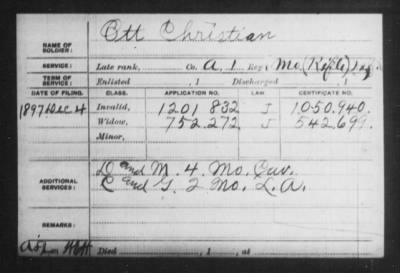 Ott Christian
NAME OF SOLDIER:
SERVICE: Late rank, Co. A, 1 Reg't Mo. (Rifle) Inf.
TERM OF SERVICE: Enlisted , 1 Discharged , 1
DATE OF FILING. CLASS. APPLICATION NO. LAW CERTIFICATE NO.
1897 Dec 4 Invalid, 1201 832 J 1050.940.
Widow, 752.272 J 542.699.
Minor,
ADDITIONAL SERVICES: D and M. 4. Mo. Cav.
C and G. 2 Mo. L.A.
REMARKS:
Died , 1 , at